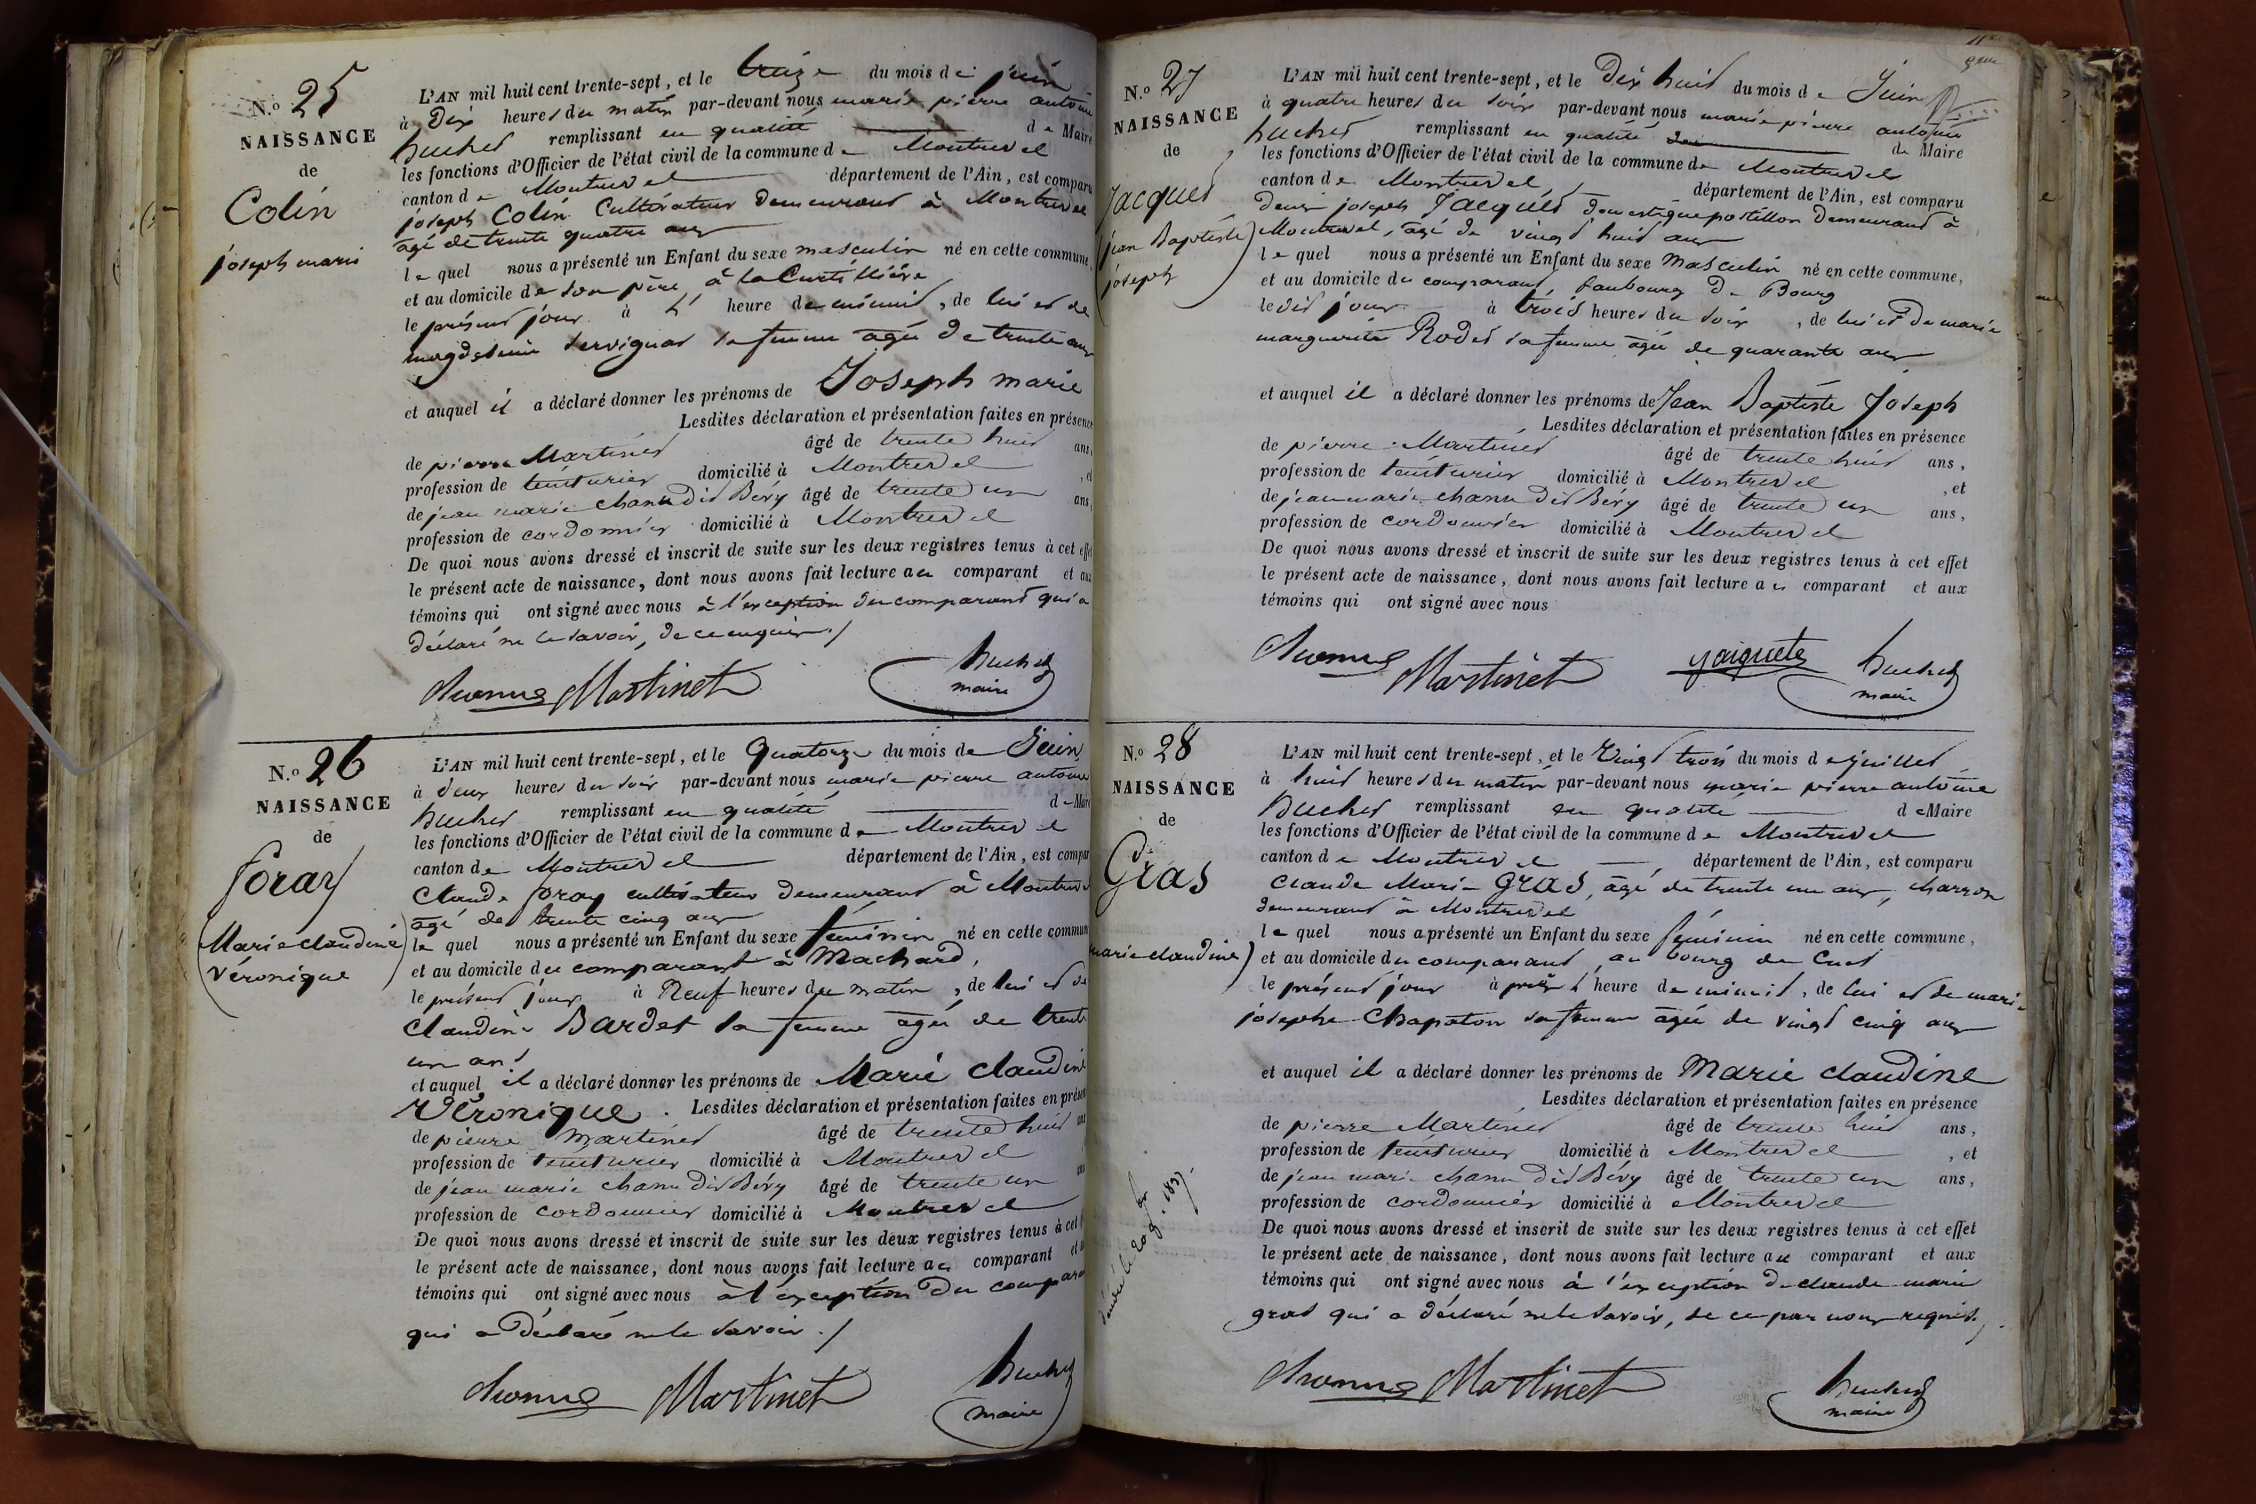 N.o 25
NAISSANCE
de
Colin
joseph marie
L'AN mil huit cent trente-sept, et le treize du mois de juin
à Dix heures du matin par-devant nous marie pierre antoine
huchet remplissant en qualité de Maire
les fonctions d'Officier de l'état civil de la commune de Montrevel
canton de Montrevel département de l'Ain, est comparu
joseph Colin Cultivateur demeurant à Montrevel
agé de trente quatre ans
le quel nous a présenté un Enfant du sexe masculin né en cette commune,
et au domicile de son père, à la Curtillière
le présent jour à 1' heure de minuit, de lui et de
magdeleine servignat sa femme agée de trente ans
et auquel il a déclaré donner les prénoms de Joseph marie
Lesdites déclaration et présentation faites en présence
de pierre Martinet âgé de trente huit ans,
profession de teinturier domicilié à Montrevel , et
de jean marie chanu dit Béry âgé de trente un ans,
profession de cordonnier domicilié à Montrevel
De quoi nous avons dressé et inscrit de suite sur les deux registres tenus à cet effet
le présent acte de naissance, dont nous avons fait lecture au comparant et aux
témoins qui ont signé avec nous à l'exception du comparant qui a
déclaré ne le savoir, de ce enquis ./
Martinet huchet
maire
N.o 26
NAISSANCE
de
foray
Marie claudine
véronique
L'AN mil huit cent trente-sept, et le Quatorze du mois de Juin
à deux heures du soir par-devant nous marie pierre antoine
huchet remplissant en qualité de Maire
les fonctions d'Officier de l'état civil de la commune de Montrevel
canton de Montrevel département de l'Ain, est compar
Claude foray cultivateur demeurant à Montrevel
agé de trente cinq ans
le quel nous a présenté un Enfant du sexe féminin né en cette commun
et au domicile du comparant à Machard,
le présent jour à Neuf heures du matin, de lui et de
claudine Bardet sa femme agée de trente
un ans
et auquel il a déclaré donner les prénoms de Marie claudine
Véronique. Lesdites déclaration et présentation faites en présen
de pierre Martinet âgé de trente huit ans
profession de teinturier domicilié à Montrevel
de jean marie chanu dit Béry âgé de trente un ans
profession de cordonnier domicilié à Montrevel
De quoi nous avons dressé et inscrit de suite sur les deux registres tenus à cet
le présent acte de naissance, dont nous avons fait lecture au comparant et a
témoins qui ont signé avec nous à l'exception du compara
qui a déclaré ne le savoir ./
Martinet huchet
maire
N.o 27
NAISSANCE
de
Jacquet
jean Baptiste
joseph
L'AN mil huit cent trente-sept, et le Dix huit du mois de Juin
à quatre heures du soir par-devant nous marie pierre antoine
huchet remplissant en qualité de Maire
les fonctions d'Officier de l'état civil de la commune de Montrevel
canton de Montrevel, département de l'Ain, est comparu
joseph Jacquet domestique postillon demeurant à
Montrevel, agé de vingt huit ans
le quel nous a présenté un Enfant du sexe Masculin né en cette commune,
et au domicile du comparant, faubourg de Bourg
ledit jour à trois heures du soir, de lui et de marie
marguerite Rodet sa femme agée de quarante ans
et auquel il a déclaré donner les prénoms de Jean Baptiste Joseph
Lesdites déclaration et présentation faites en présence
de pierre Martinet âgé de trente huit ans,
profession de teinturier domicilié à Montrevel , et
de jean marie chanu dit Béry âgé de trente un ans,
profession de cordonnier domicilié à Montrevel
De quoi nous avons dressé et inscrit de suite sur les deux registres tenus à cet effet
le présent acte de naissance, dont nous avons fait lecture au comparant et aux
témoins qui ont signé avec nous
Martinet huchet
maire
N.o 28
NAISSANCE
de
Gras
marie claudine
L'AN mil huit cent trente-sept, et le Vingt trois du mois de juillet
à huit heures du matin par-devant nous marie pierre antoine
huchet remplissant en qualité de Maire
les fonctions d'Officier de l'état civil de la commune de Montrevel
canton de Montrevel, département de l'Ain, est comparu
Claude Marie GRAS, âgé de trente un ans, charron
demeurant à Montrevel
le quel nous a présenté un Enfant du sexe féminin né en cette commune,
et au domicile du comparant, au bourg de Cuet
le présent jour à près 1' heure de minuit, de lui et de marie
josephe Chapaton sa femme agée de vingt cinq ans
et auquel il a déclaré donner les prénoms de Marie claudine
Lesdites déclaration et présentation faites en présence
de pierre Martinet âgé de trente huit ans,
profession de teinturier domicilié à Montrevel , et
de jean marie chanu dit Béry âgé de trente un ans,
profession de cordonnier domicilié à Montrevel
De quoi nous avons dressé et inscrit de suite sur les deux registres tenus à cet effet
le présent acte de naissance, dont nous avons fait lecture au comparant et aux
témoins qui ont signé avec nous à l'exception de claude marie
gras qui a déclaré ne le savoir, de ce par nous requis.
Martinet huchet
maire